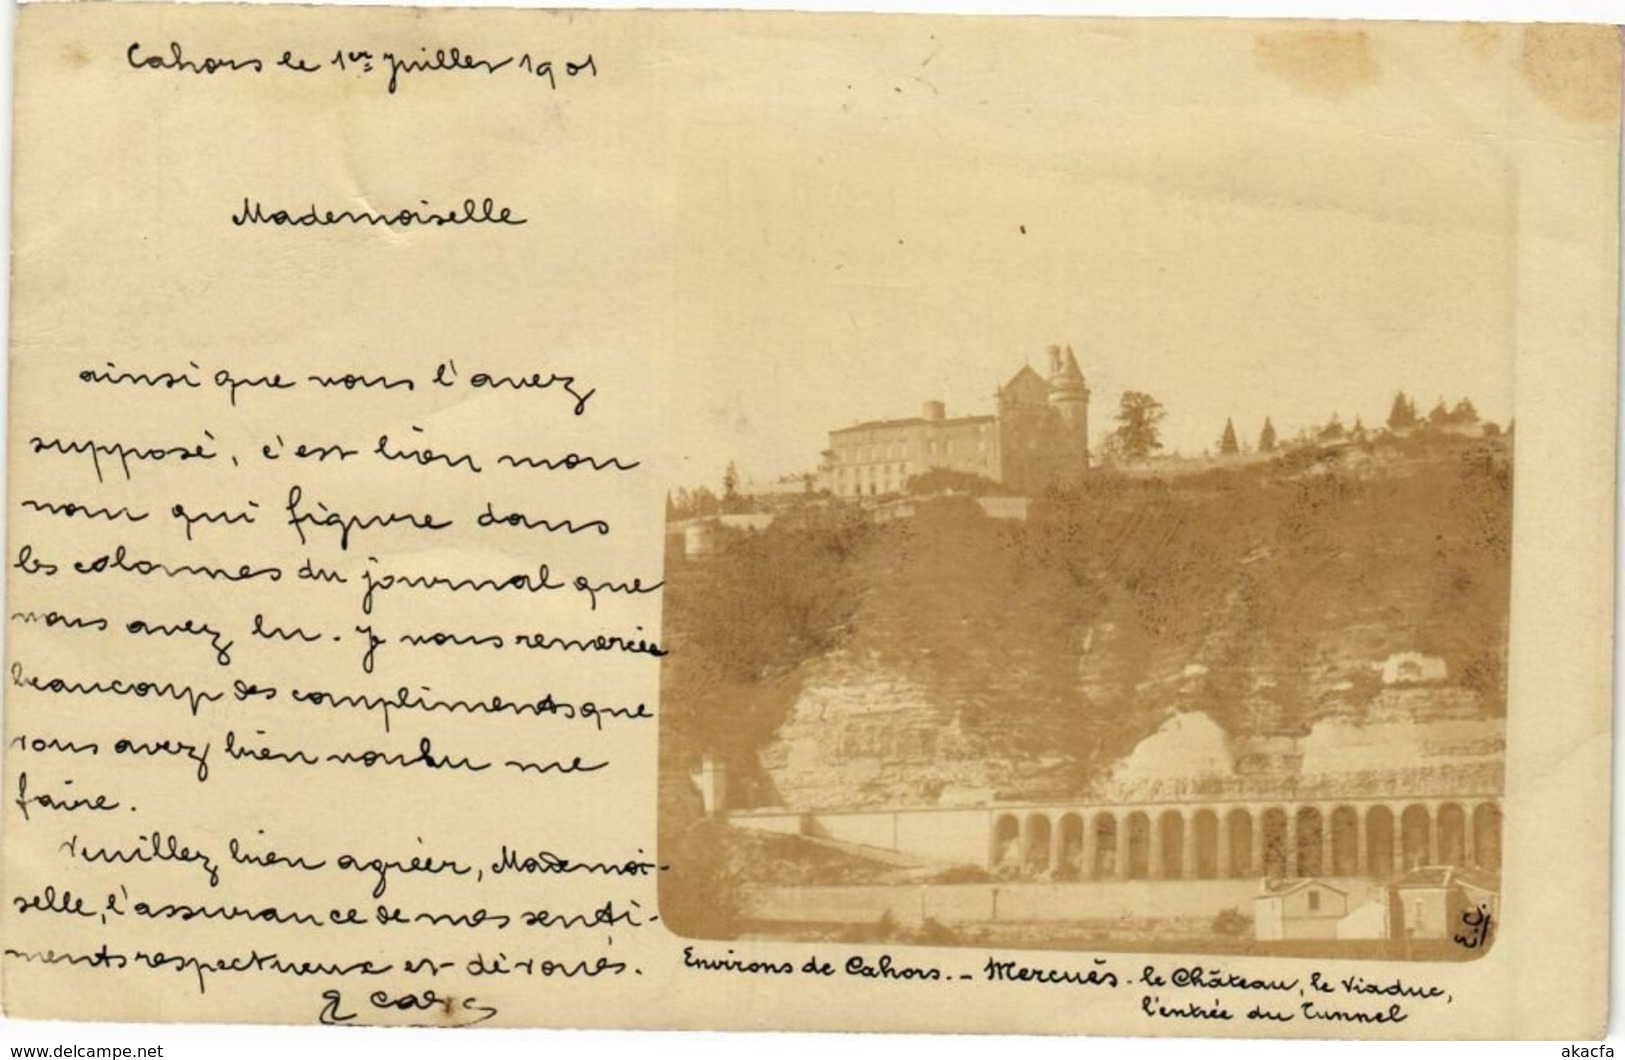 Cahors le 1er Juillet 1901
Mademoiselle
ainsi que vous l'avez
supposé, c'est bien mon
nom qui figure dans
les colonnes du journal que
vous avez lu. Je vous remercie
beaucoup des compliments que
vous avez bien voulu me
faire.
Veuillez bien agréer, Mademoi-
selle, l'assurance de mes senti-
ments respectueux et dévoués.
E.C.
Environs de Cahors. - Mercuès - le Château, le Viaduc,
l'entrée du Tunnel
www.delcampe.net
akacfa